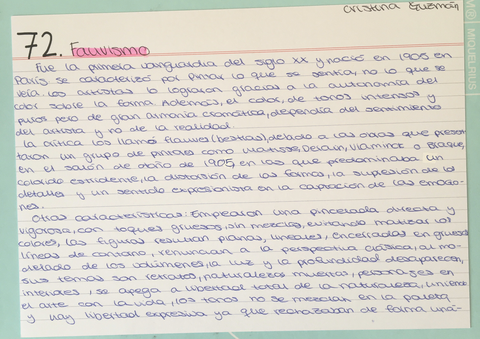 Cristina Guzmán
MIQUELRIUS
72. Fauvismo
Fue la primera vanguardia del siglo XX y nació en 1905 en
París se caracterizó por pintar lo que se sentía, no lo que se
veía. Los artistas lo lograron gracias a la autonomía del
color sobre la forma. Además, el color, de tonos intensos y
puros pero de gran armonía cromática, dependía del sentimiento
del artista y no de la realidad.
La crítica los llamó fauves (bestias), debido a las obras que presen
taron un grupo de pintores como Matisse, Derain, Vlaminck o Braque,
en el salón de otoño de 1905, en las que predominaba un
colorido estridente, la distorsión de las formas, la supresión de los
detalles y un sentido expresionista en la captación de las emocio-
nes.
Otras características: Emplearon una pincelada directa y
vigorosa, con toques gruesos, sin mezclas, evitando matizar los
colores, las figuras resultan planas, lineales, encerradas en gruesas
líneas de contorno, renuncian a la perspectiva clásica, al mo-
delado de los volúmenes, la luz y la profundidad desaparecen,
sus temas son retratos, naturalezas muertas, personajes en
interiores, se apega a libertad total de la naturaleza, uniendo
el arte con la vida, los tonos no se mezclan en la paleta
y hay libertad expresiva ya que rechazaban de forma uná-